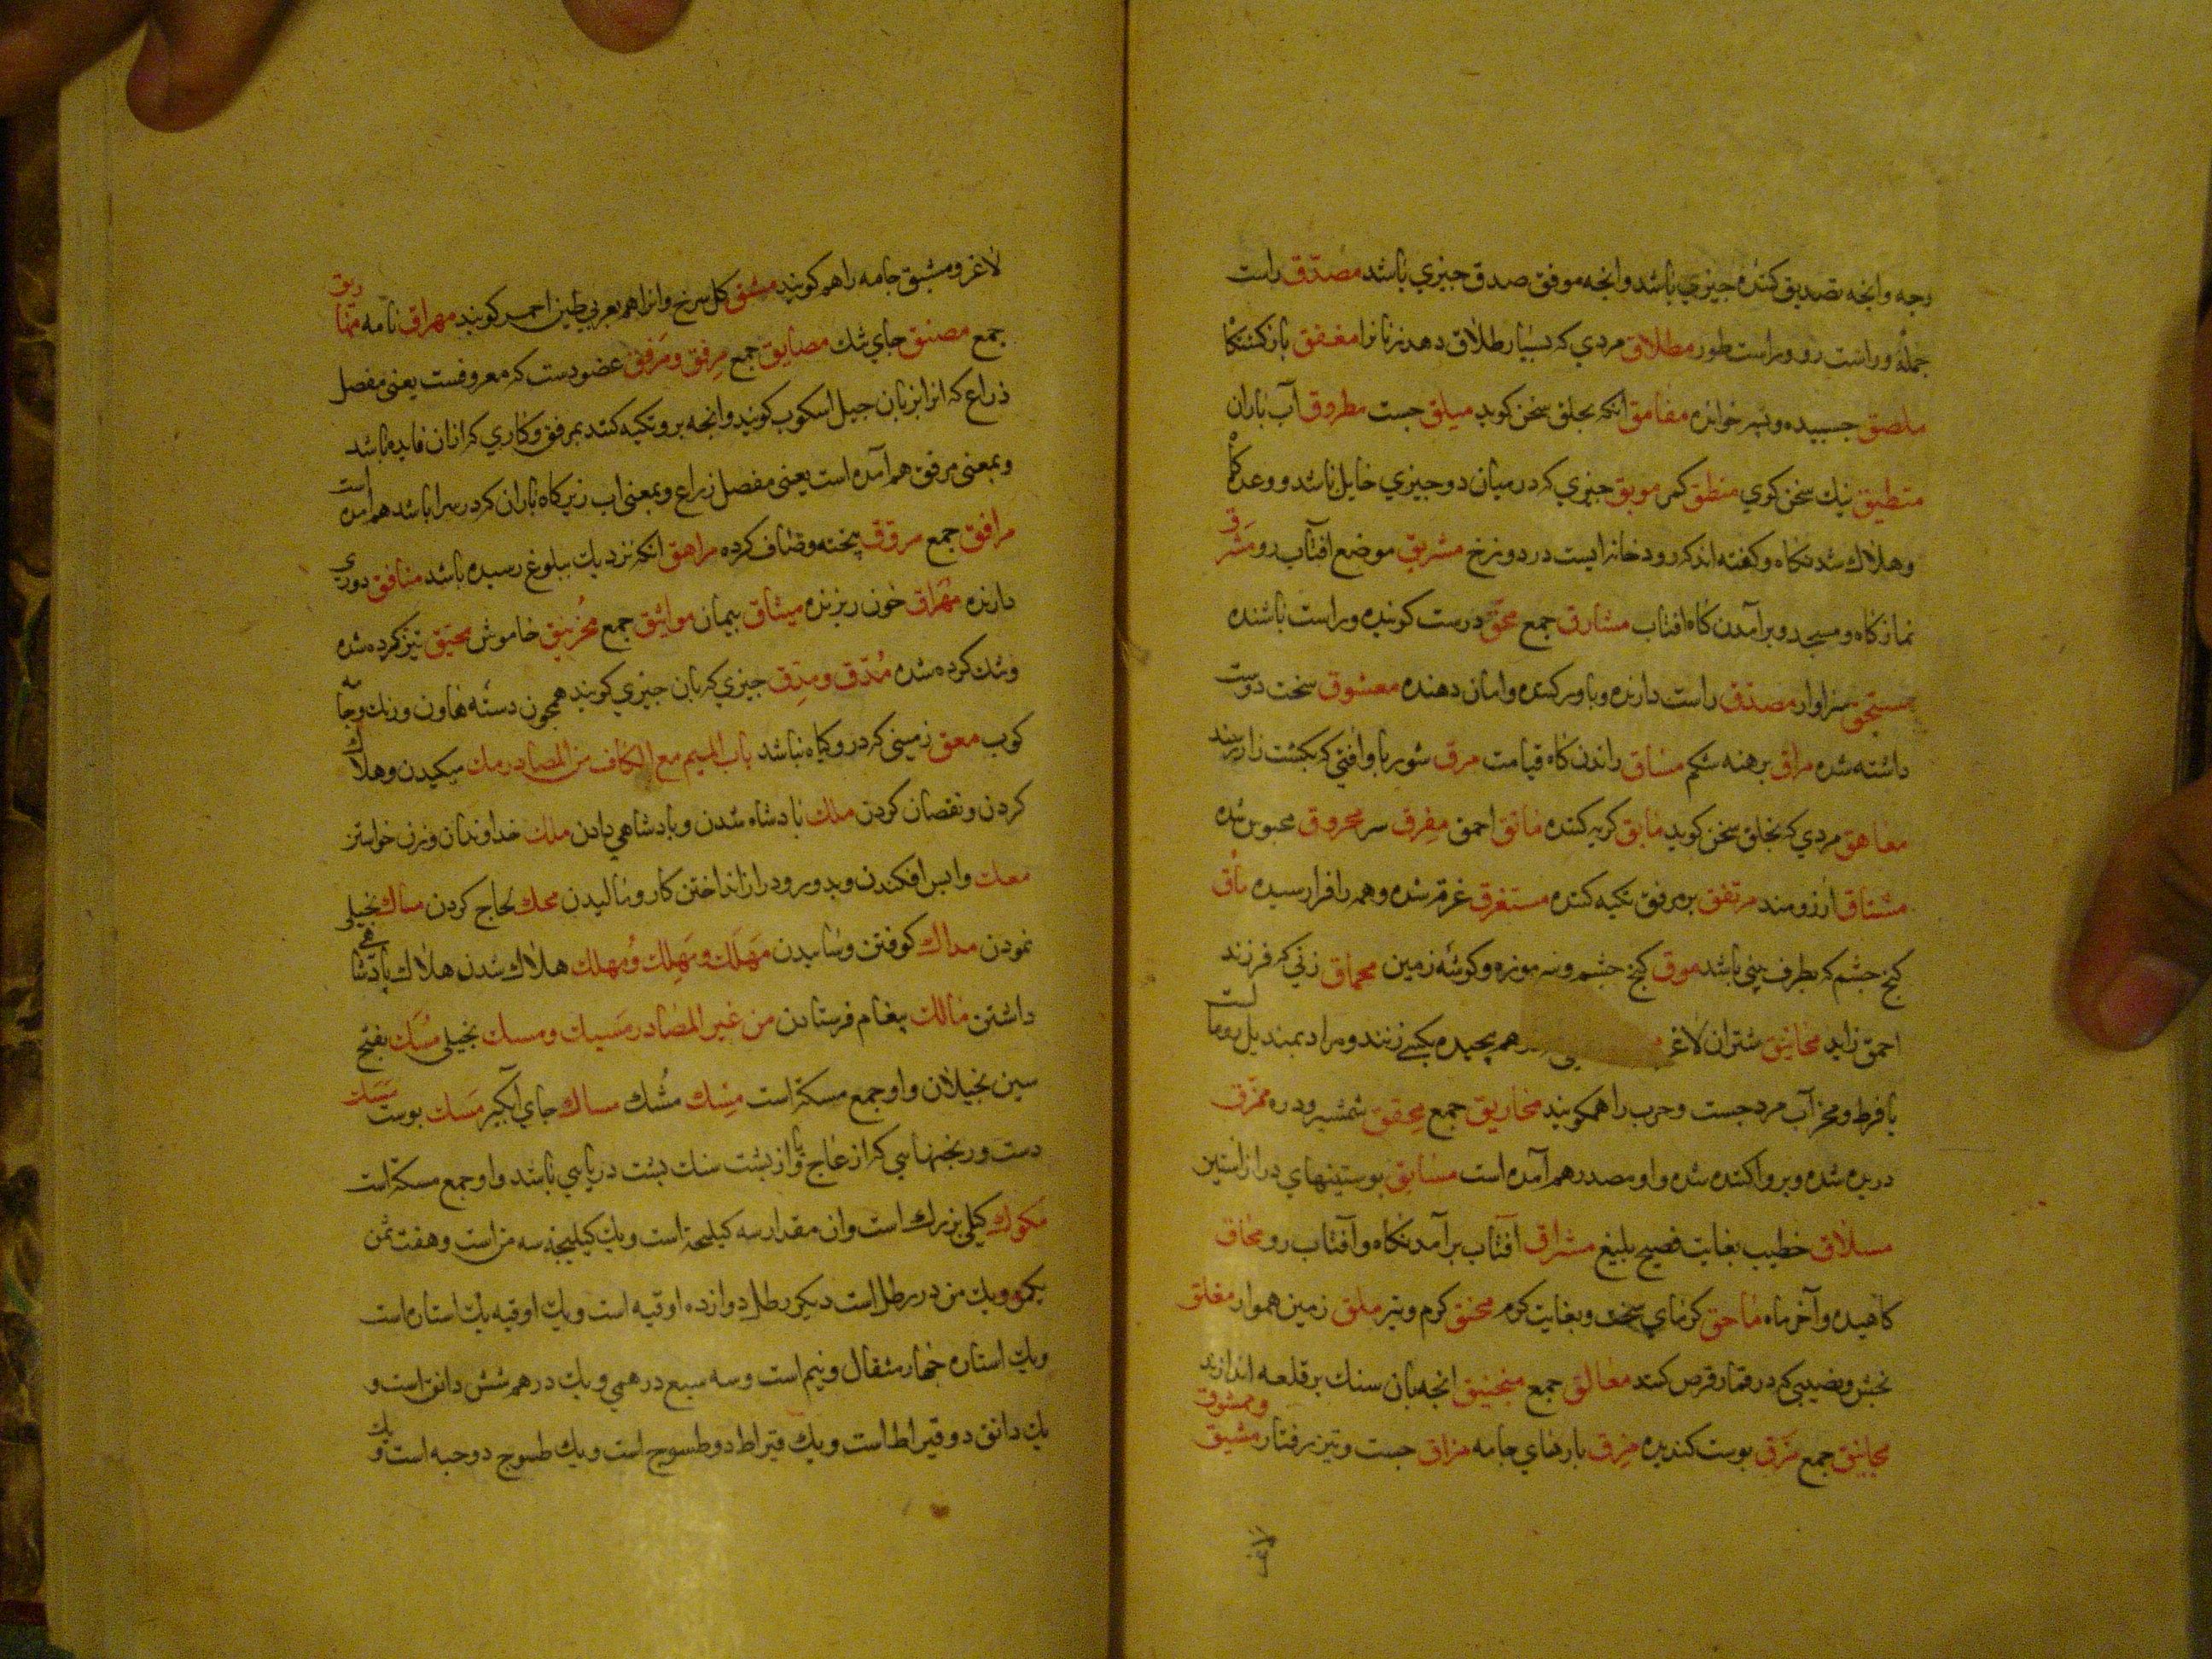 رجه وانجه تصدیق کننده جیزی باشد وانجه موفق صدق جیزی باشد مصدّق راست
جمله وراست رو وراست طور مطلاق مردی که بسیار طلاق دهد زنانرا مغفق بازکشتنکا
ملصق جسبیده وپسر خوانده مقامق انکه بجلق سخن کوید میلق جست مطروق آب باران
منطیق نیك سخن کوی منطق کمر موبق جیزی که درمیان دو جیزی حایل باشد ووعدکا
وهلاك شدنکاه وکفته اند که رودخانه ایست در دوزخ مشریق موضع افتاب رو مشرق
نمازکاه ومسجد وبرآمدن کاه افتاب مشارق جمع محق درست کوینده وراست باشنده
مستحق سزاوار مصدق راست دارنده وباور کننده وامان دهنده معشوق سخت دوست
داشته شده مراق برهنه شکم مساق راندن کاه قیامت مرق شوربا وافتی که بکشت زار رسد
معاهق مردی که بخلق سخن کوید مابق کریه کننده مائق احمق مفرق سر محروق محبوس شده
مشتاق ارزومند مرتفق برمرفق تکیه کننده مستغرق غرقه شده وهمه را فرا رسیده ماق
کنج جشم که بطرف بینی باشد موق کنج جشم وسر موزه وکوشه زمین محماق زنی که فرزند
احمق زاید مخانیق شتران لاغر هم پیچیده بکسی زنند ومراد بمندیل
یا فرط ومخراب مرد جست وحرب را همکویند مخاریق جمع محقق شمشیر ودره ممزق
دریده شده وبرواکنده شده واو مصدر هم آمده است مساتق بوستینهای دراز استین
مسلاق خطیب بغایت فصیح بلیغ مشراق آفتاب برآمدنکاه وآفتاب رو محاق
کاهیده وآخر ماه ماحق کرمای سخت وبغایت کرم محنق کرم وتیر ملق زمین هموار مغلق
بخش ونصیبی که در قمار قرص کنند مغالق جمع منجنیق انجه بان سنك بر قلعه اندازند
مجانیق جمع مزق بوست کندیده مزق بارهای جامه مزاق جست وتیز رفتار مشیق وممشوق
لاغر ومشیق جامه را هم کویند مشق کل سرخ وانرا هم بعربی طین احمر کویند مهراق نامه مهاریق
جمع مصنق جای تنك مصایق جمع مرفق ومرفق عضو دست که معروفست یعنی مفصل
ذراع که انرا بزبان جیل اسکوب کویند وانجه برو تکیه کنند بمرفق وکاری که ازان فایده باشد
وبمعنی مرفق هم آمده است یعنی مفصل ذراع وبمعنی اب زیر کاه باران که در سرا باشد هم امده است
مرافق جمع مروّق پخته وصاف کرده مراهق انکه نزدیك ببلوغ رسیده باشد منافق دوری
دارنده مهراق خون ریزنده میثاق پیمان مواثیق جمع مخرنبق خاموش محنق تیز کرده شده
وتنك کرده شده مُدُق ومِدَق جیزی که بان جیزی کوبند همجون دسته هاون ورنك وجامه
کوب معق زمینی که درو کیاه نباشد باب المیم مع الکاف من المصادر مك میکیدن وهلاك
کردن ونقصان کردن ملك بادشاه شدن وبادشاهی دادن ملك خداوندان وزن خواستن
معك وابس افکندن وبدور ودراز انداختن کار ومالیدن محك لجاج کردن مساك بخیلی
نمودن مداك کوفتن وسابیدن مَهلَك ومَهلِك ومُهلك هلاك شدن هلاك پادشاهی
داشتن مالك پیغام فرستادن من غیر المصادر مسیك ومسك بخیلی مُسَك بفتح
سین بخیلان واو جمع مسکة است مِسك مُشك مساك جای آبکیر مَسك بوست مَسَك
دست ورنجنهایی که از عاج ویا از بشت سنك بشت دریایی باشد واو جمع مسکة است
مکوك کیلی بزرك است وان مقدار سه کیلجة است ویك کیلیجه سه من است وهفت ثمن
یکمن ویك من دو رطل است دیکر رطل دوازده اوقیه است ویك اوقیه یك استاره است
ویك استاره جهار مثقال ونیم است وسه سبع درهمی ویك درهم شش دانق است و
یك دانق دو قیراط است ویك قیراط دو طسوج است ویك طسوج دو حبه است و یك